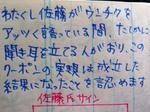 わたくし佐藤がウンチクを
アツく語っている間、たしかに
聞き耳を立てる人がおり、この
クーポンの実現は成立した
結果になったことを認めます
佐藤氏サイン